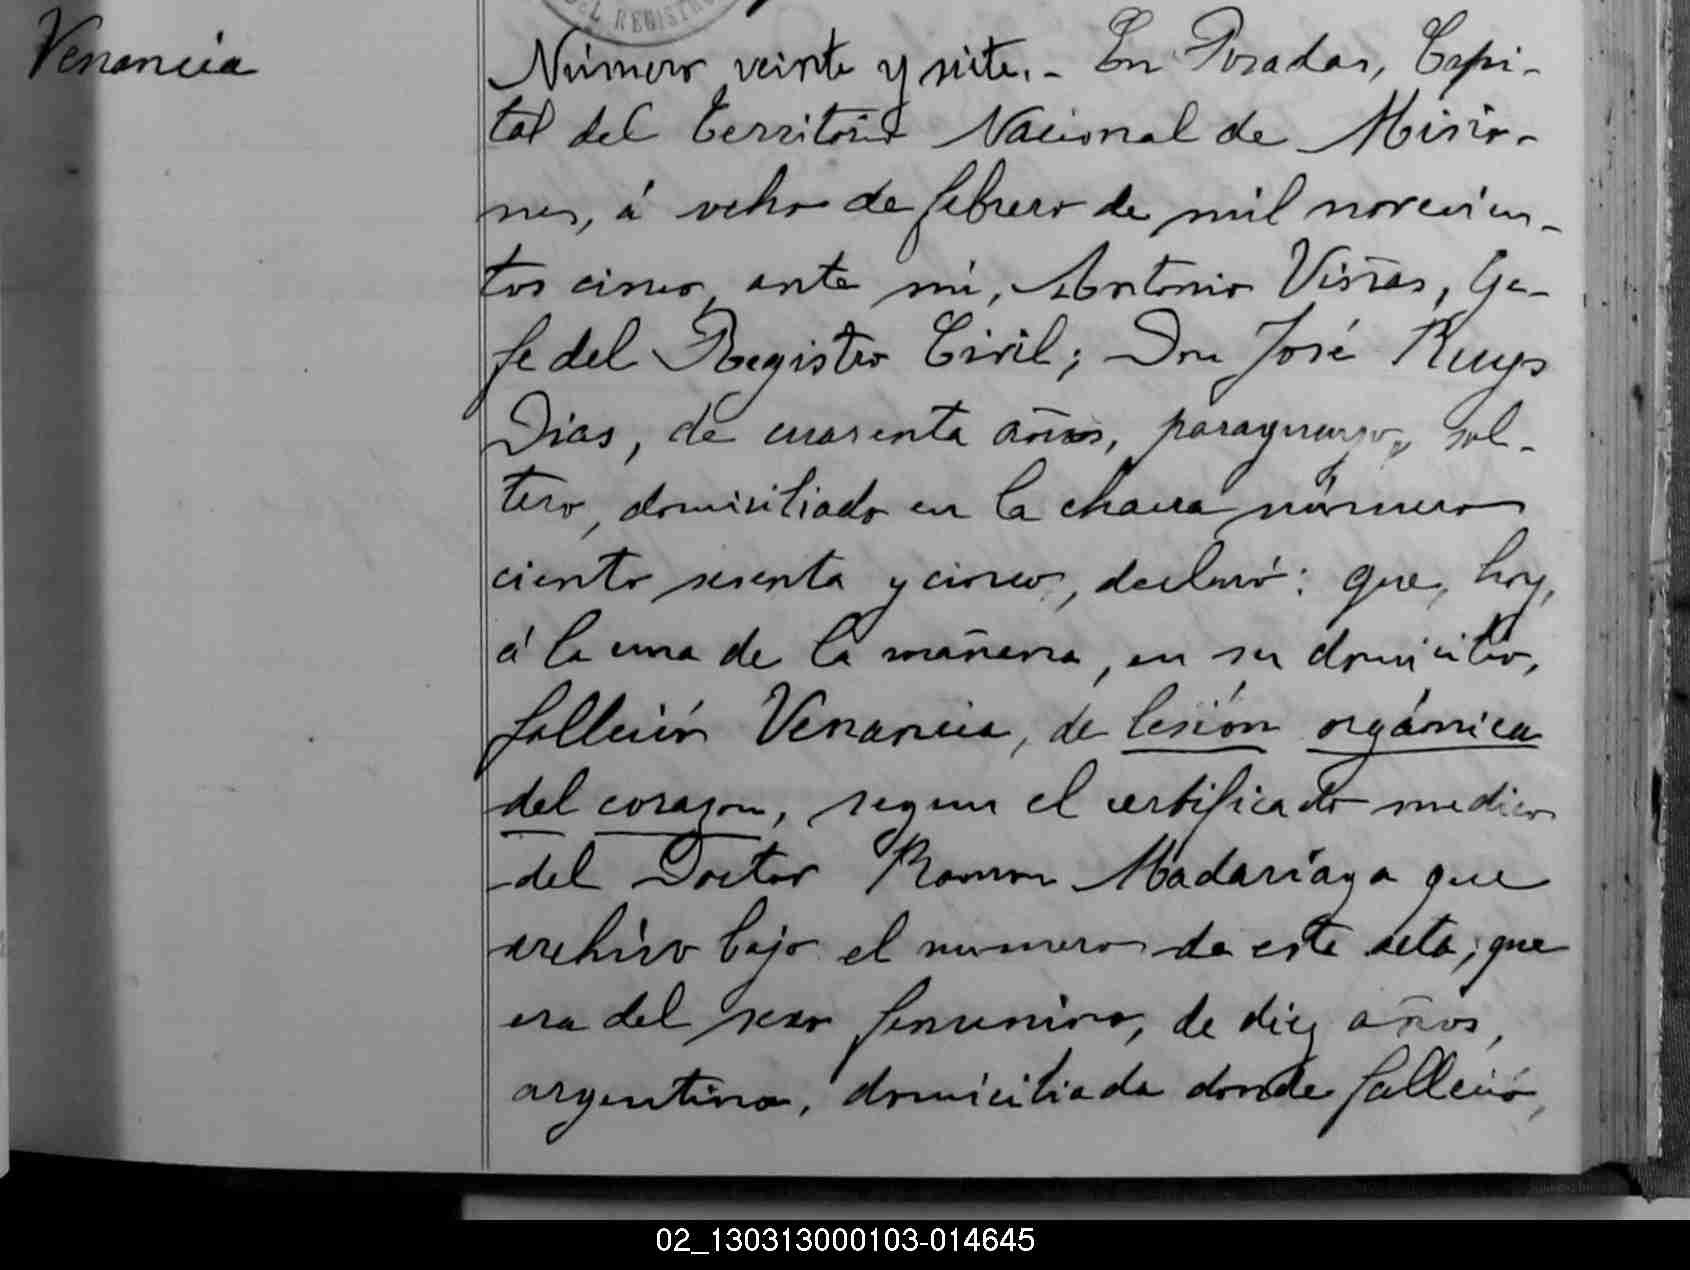 DEL REGISTRO
Venancia
Número veinte y siete.- En Posadas, Capi-
tal del territorio Nacional de Misio-
nes, á ocho de febrero de mil novecien-
tos cinco, ante mí, Antonio Viñas, Ge-
fe del Registro Civil; Don José Ruys
Dias, de cuarenta años, paraguayo, sol-
tero, domiciliado en la chacra número
ciento sesenta y cinco, declaró: que, hoy,
á la una de la mañana, en su domicilio,
falleció Venancia, de lesión orgánica
del corazon, segun el certificado medico
del Doctor Ramon Madariaga que
archivo bajo el numero de este acta; que
era del sexo femenino, de diez años,
argentina, domiciliada donde falleció,
02_130313000103-014645